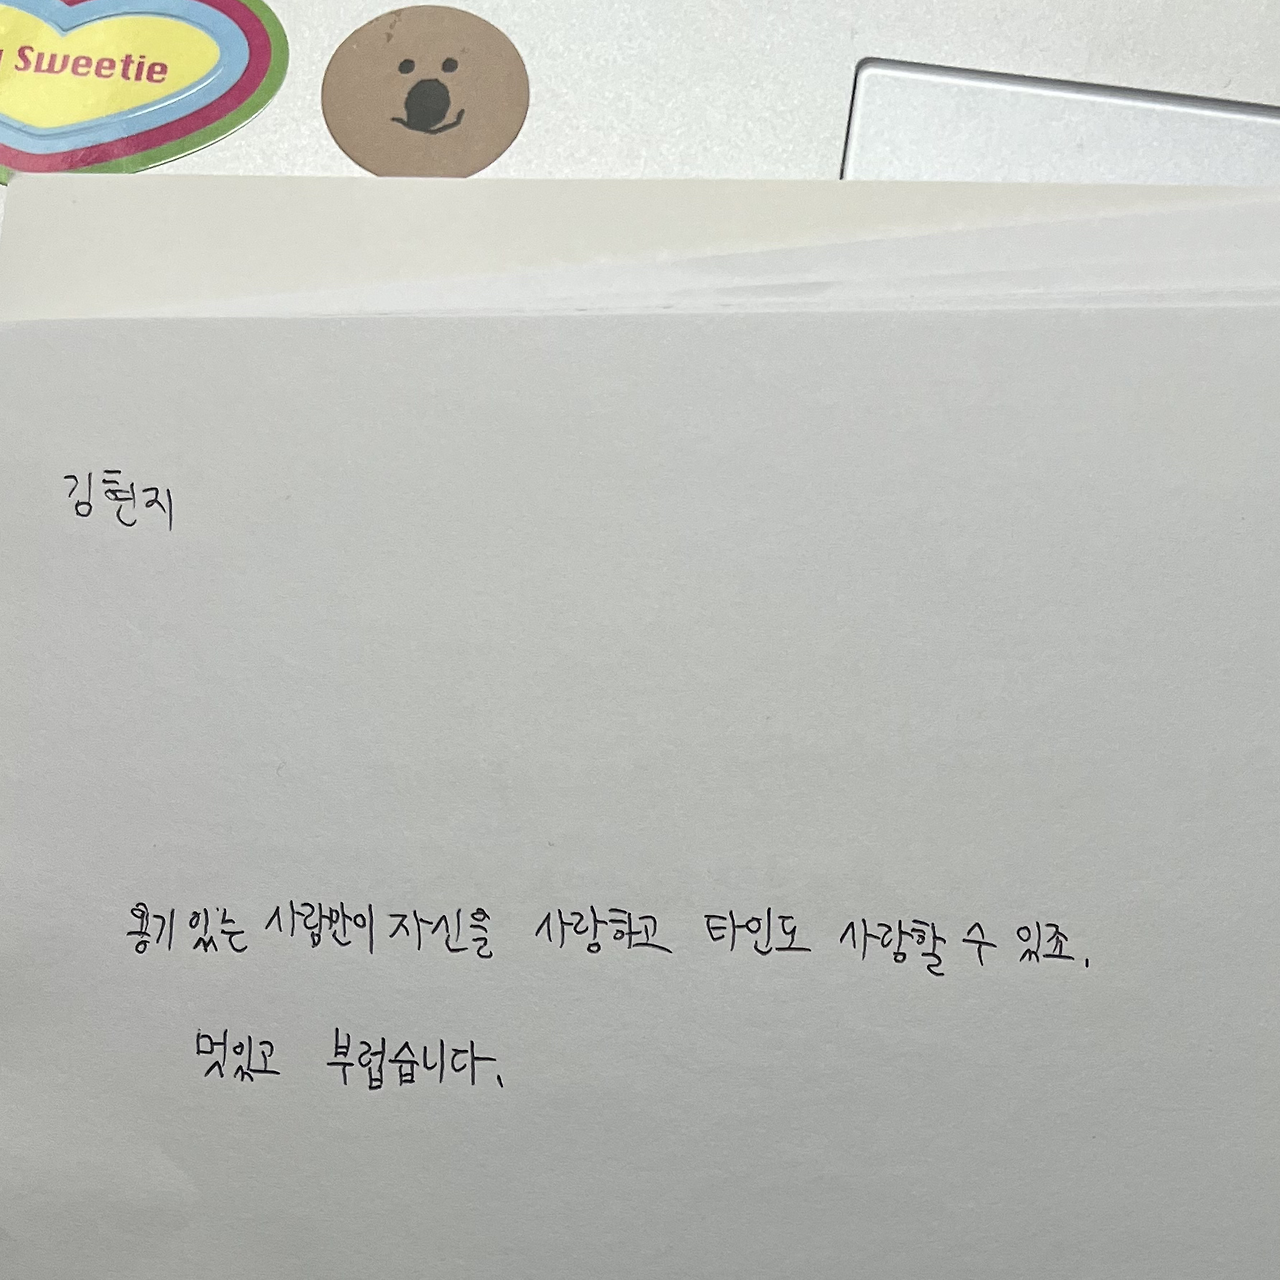 Sweetie
김현지
용기 있는 사람만이 자신을 사랑하고 타인도 사랑할 수 있죠.
멋있고 부럽습니다.